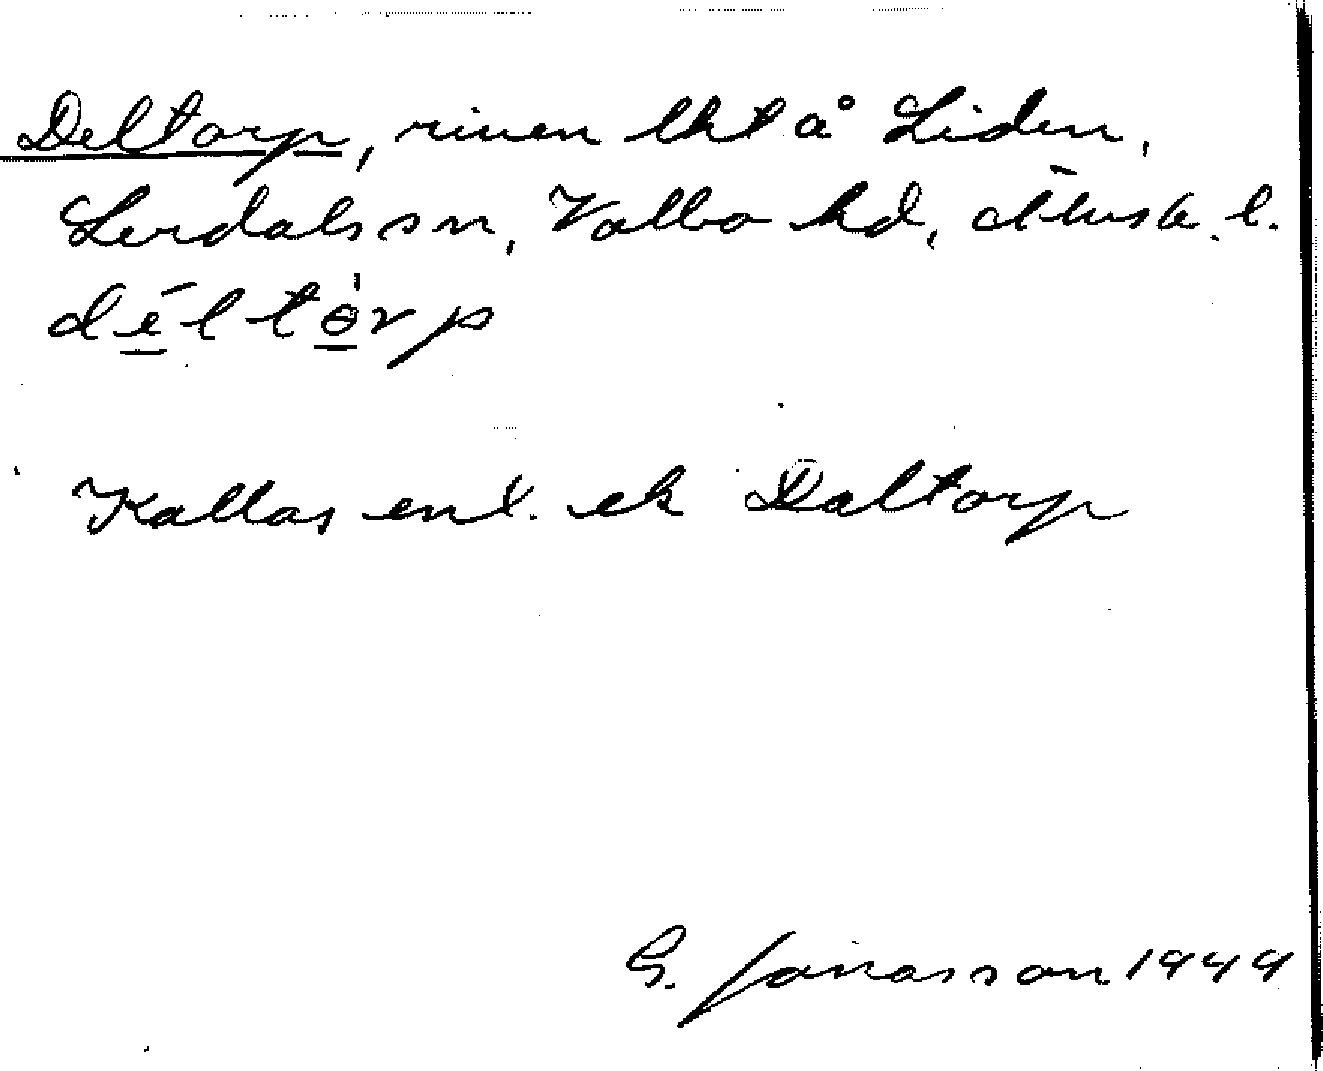 Deltorp, riven lht å Liden,
Lerdals sn, Valbo hd, Älvsb. l.
déltòrp
Kallas enl. ek Daltorp
G. Jonasson 1949